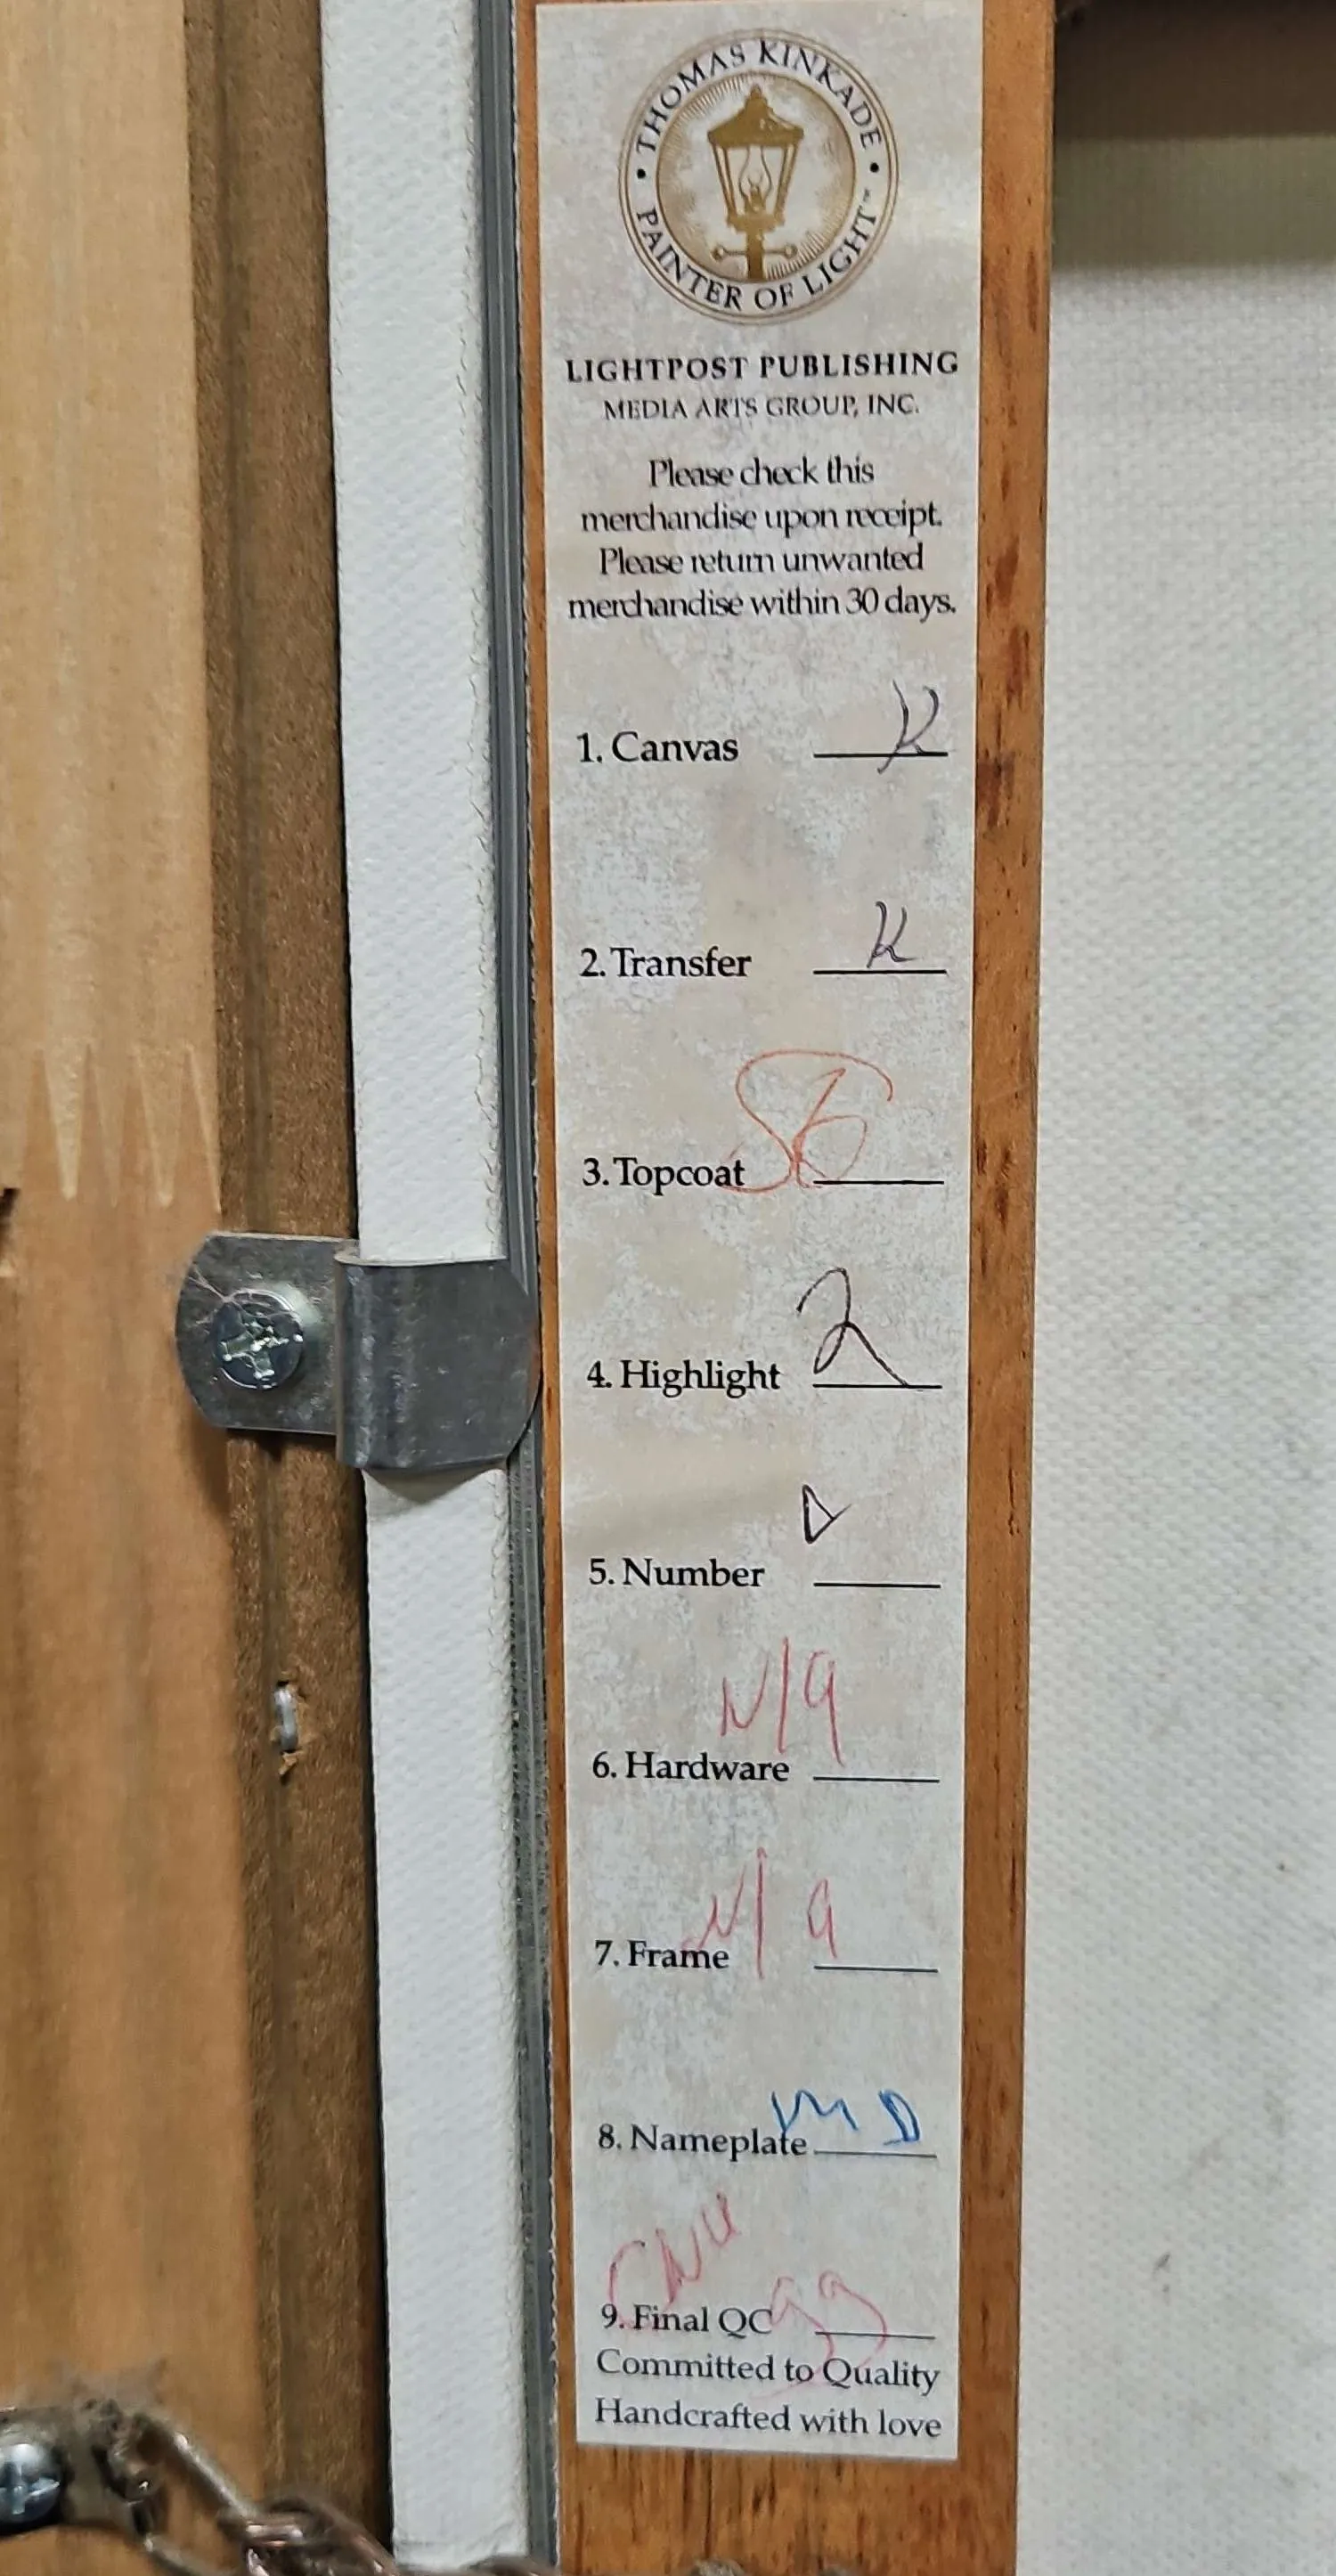 THOMAS KINKADE
PAINTER OF LIGHT™
LIGHTPOST PUBLISHING
MEDIA ARTS GROUP, INC.
Please check this
merchandise upon receipt.
Please return unwanted
merchandise within 30 days.
1. Canvas K
2. Transfer K
3. Topcoat
4. Highlight
5. Number
6. Hardware N/A
7. Frame N/A
8. Nameplate MD
9. Final QC
Committed to Quality
Handcrafted with love